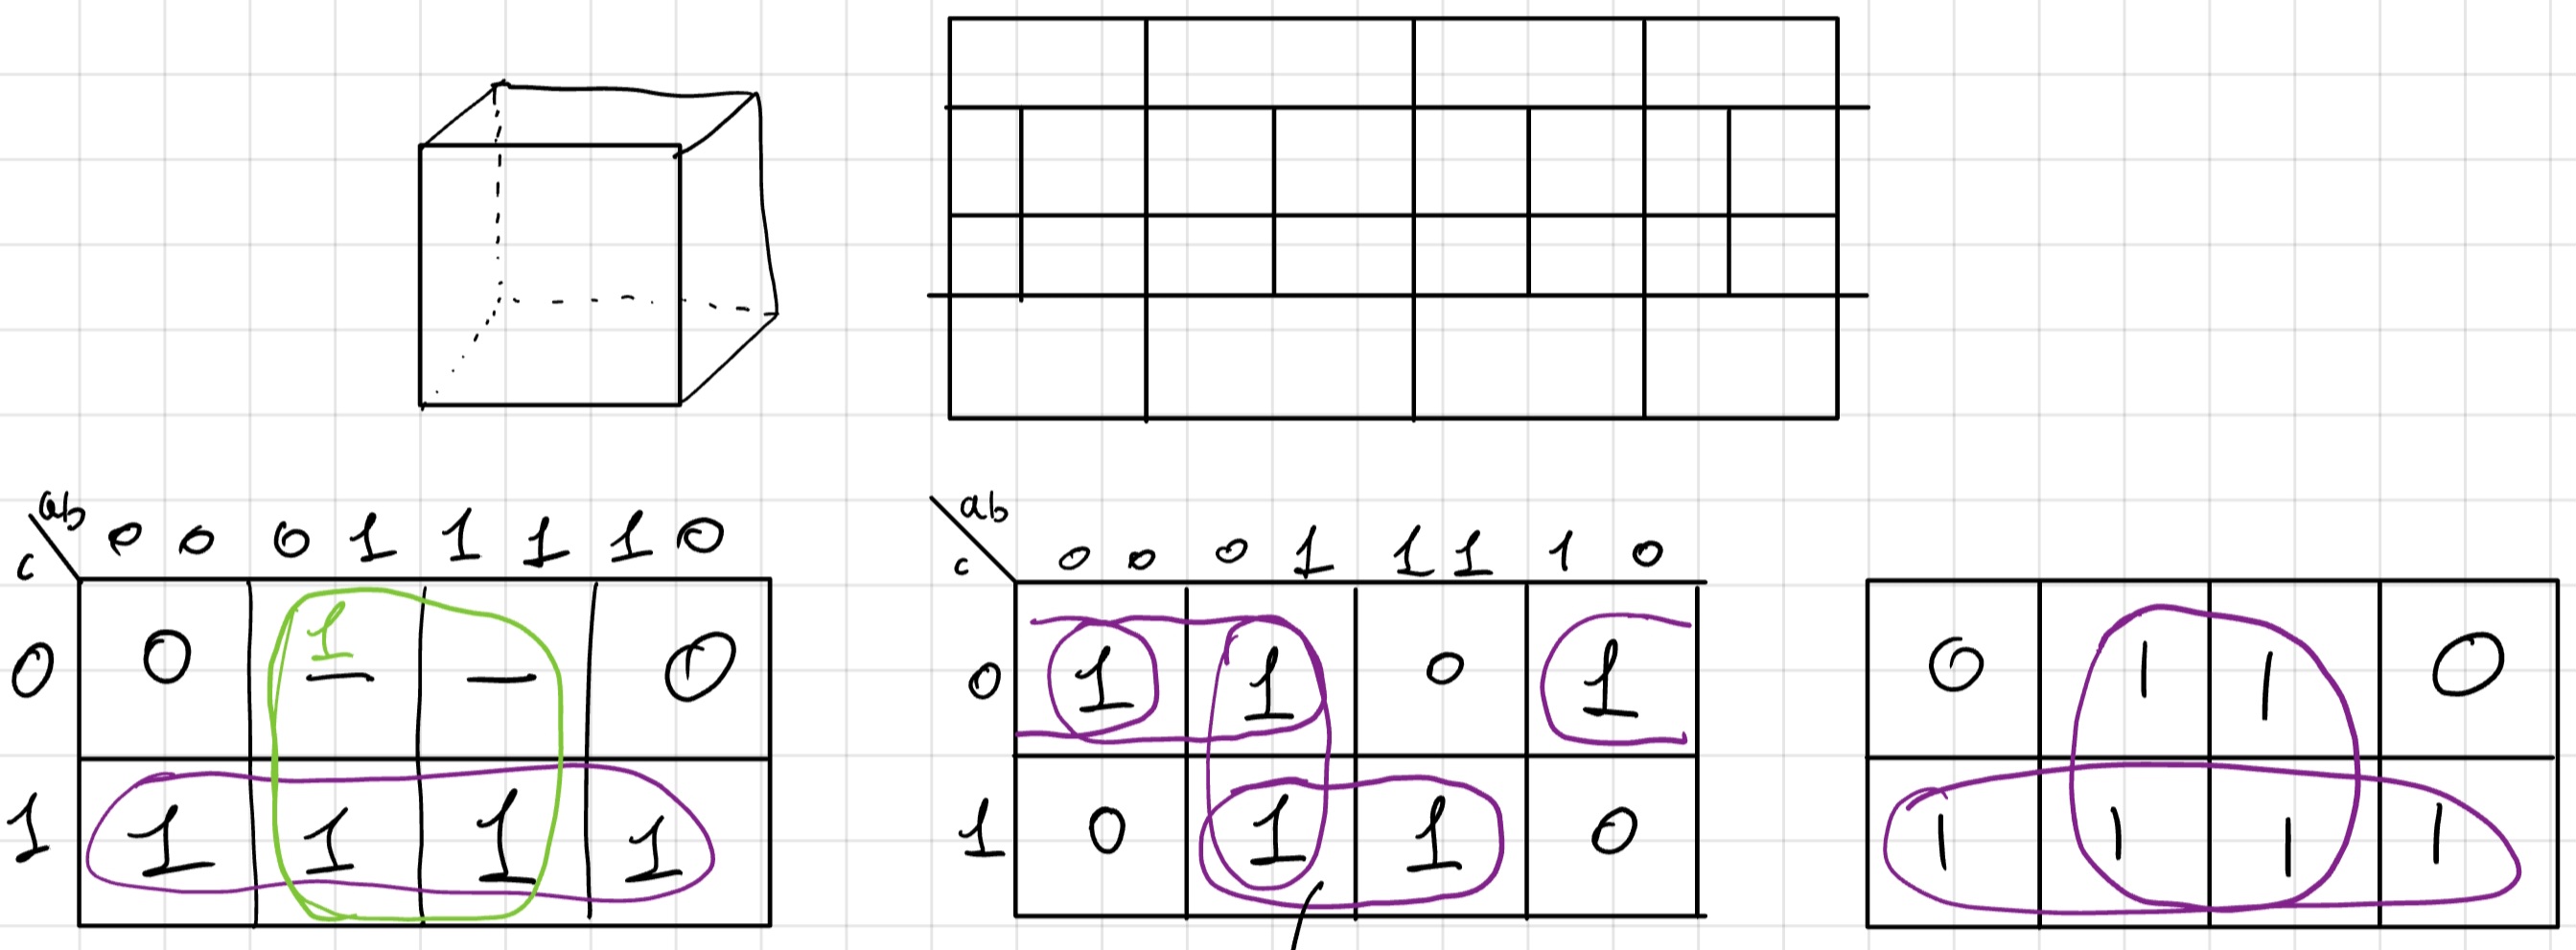 ab
c
0 0 0 1 1 1 1 0
0 0 1 – – 0
1 1 1 1 1
ab
c
0 0 0 1 1 1 1 0
0 1 1 0 1
1 0 1 1 0
0 1 1 0
1 1 1 1